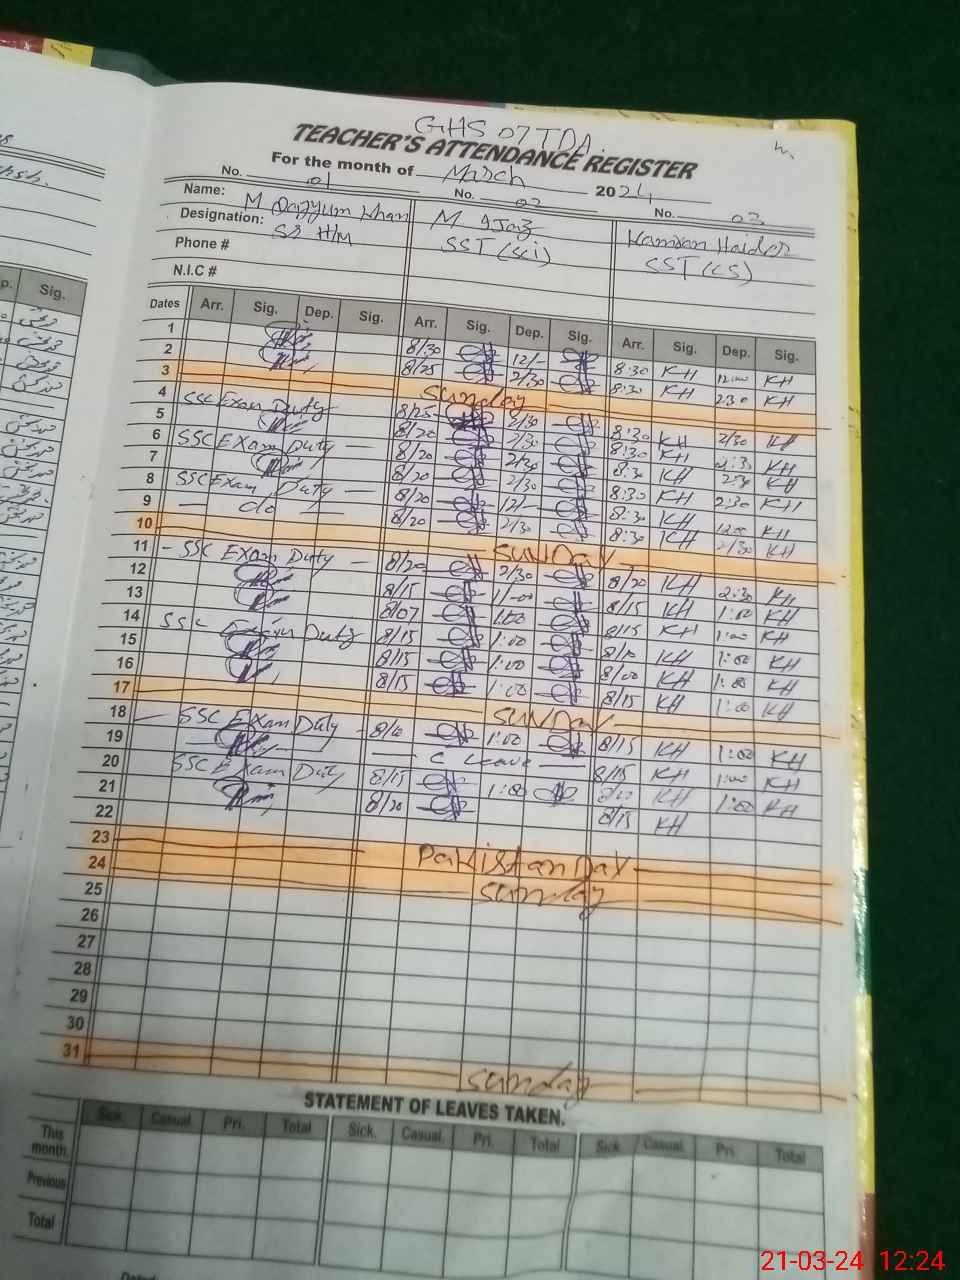 GHS 07 TDA.
TEACHER'S ATTENDANCE REGISTER
For the month of March 2024
No. 01 No. 02 No. 03
Name: M Qayyum Khan M Ijaz Kamran Haider
Designation: SS H/M SST (Sci) SST (CS)
Phone #
N.I.C #
Dates Arr. Sig. Dep. Sig. Arr. Sig. Dep. Sig. Arr. Sig. Dep. Sig.
p. Sig.
1 8/30 12/- 8:30 KH 12:00 KH
2 8/25 2/30 8:30 KH 2:30 KH
3 Sunday
4 SSC Exam Duty 8/25 2/30 8:30 KH 2/30 KH
5 8/20 2/30 8:30 KH 2:30 KH
6 SSC Exam Duty 8/20 2/30 8:30 KH 2:30 KH
7 8/20 2/30 8:30 KH 2:30 KH
8 SSC Exam Duty 8/20 12/- 8:30 KH 12:00 KH
9 do 8/20 2/30 8:30 KH 2/30 KH
10 SUNDAY
11 - SSC Exam Duty 8/20 2/30 8/20 KH 2:30 KH
12 8/15 1/-00 8/15 KH 1:00 KH
13 8/07 1:00 8/15 KH 1:00 KH
14 SSC Exam Duty 8/15 1:00 KH 1:00 KH
15 8/15 1:00 8/00 KH 1:00 KH
16 8/15 1:00 8/15 KH 1:00 KH
17 SUNDAY
18 SSC Exam Duty 8/10 1:00 8/15 KH 1:00 KH
19 C Leave 8/15 KH 1:00 KH
20 SSC Exam Duty 8/15 1:00 KH 1:00 KH
21 8/20 8/15 KH
22
23 Pakistan Day
24 Sunday
25
26
27
28
29
30
31 Sunday
STATEMENT OF LEAVES TAKEN.
Sick. Casual. Pri. Total Sick. Casual. Pri. Total Sick. Casual. Pri. Total
This month.
Previous
Total
21-03-24 12:24